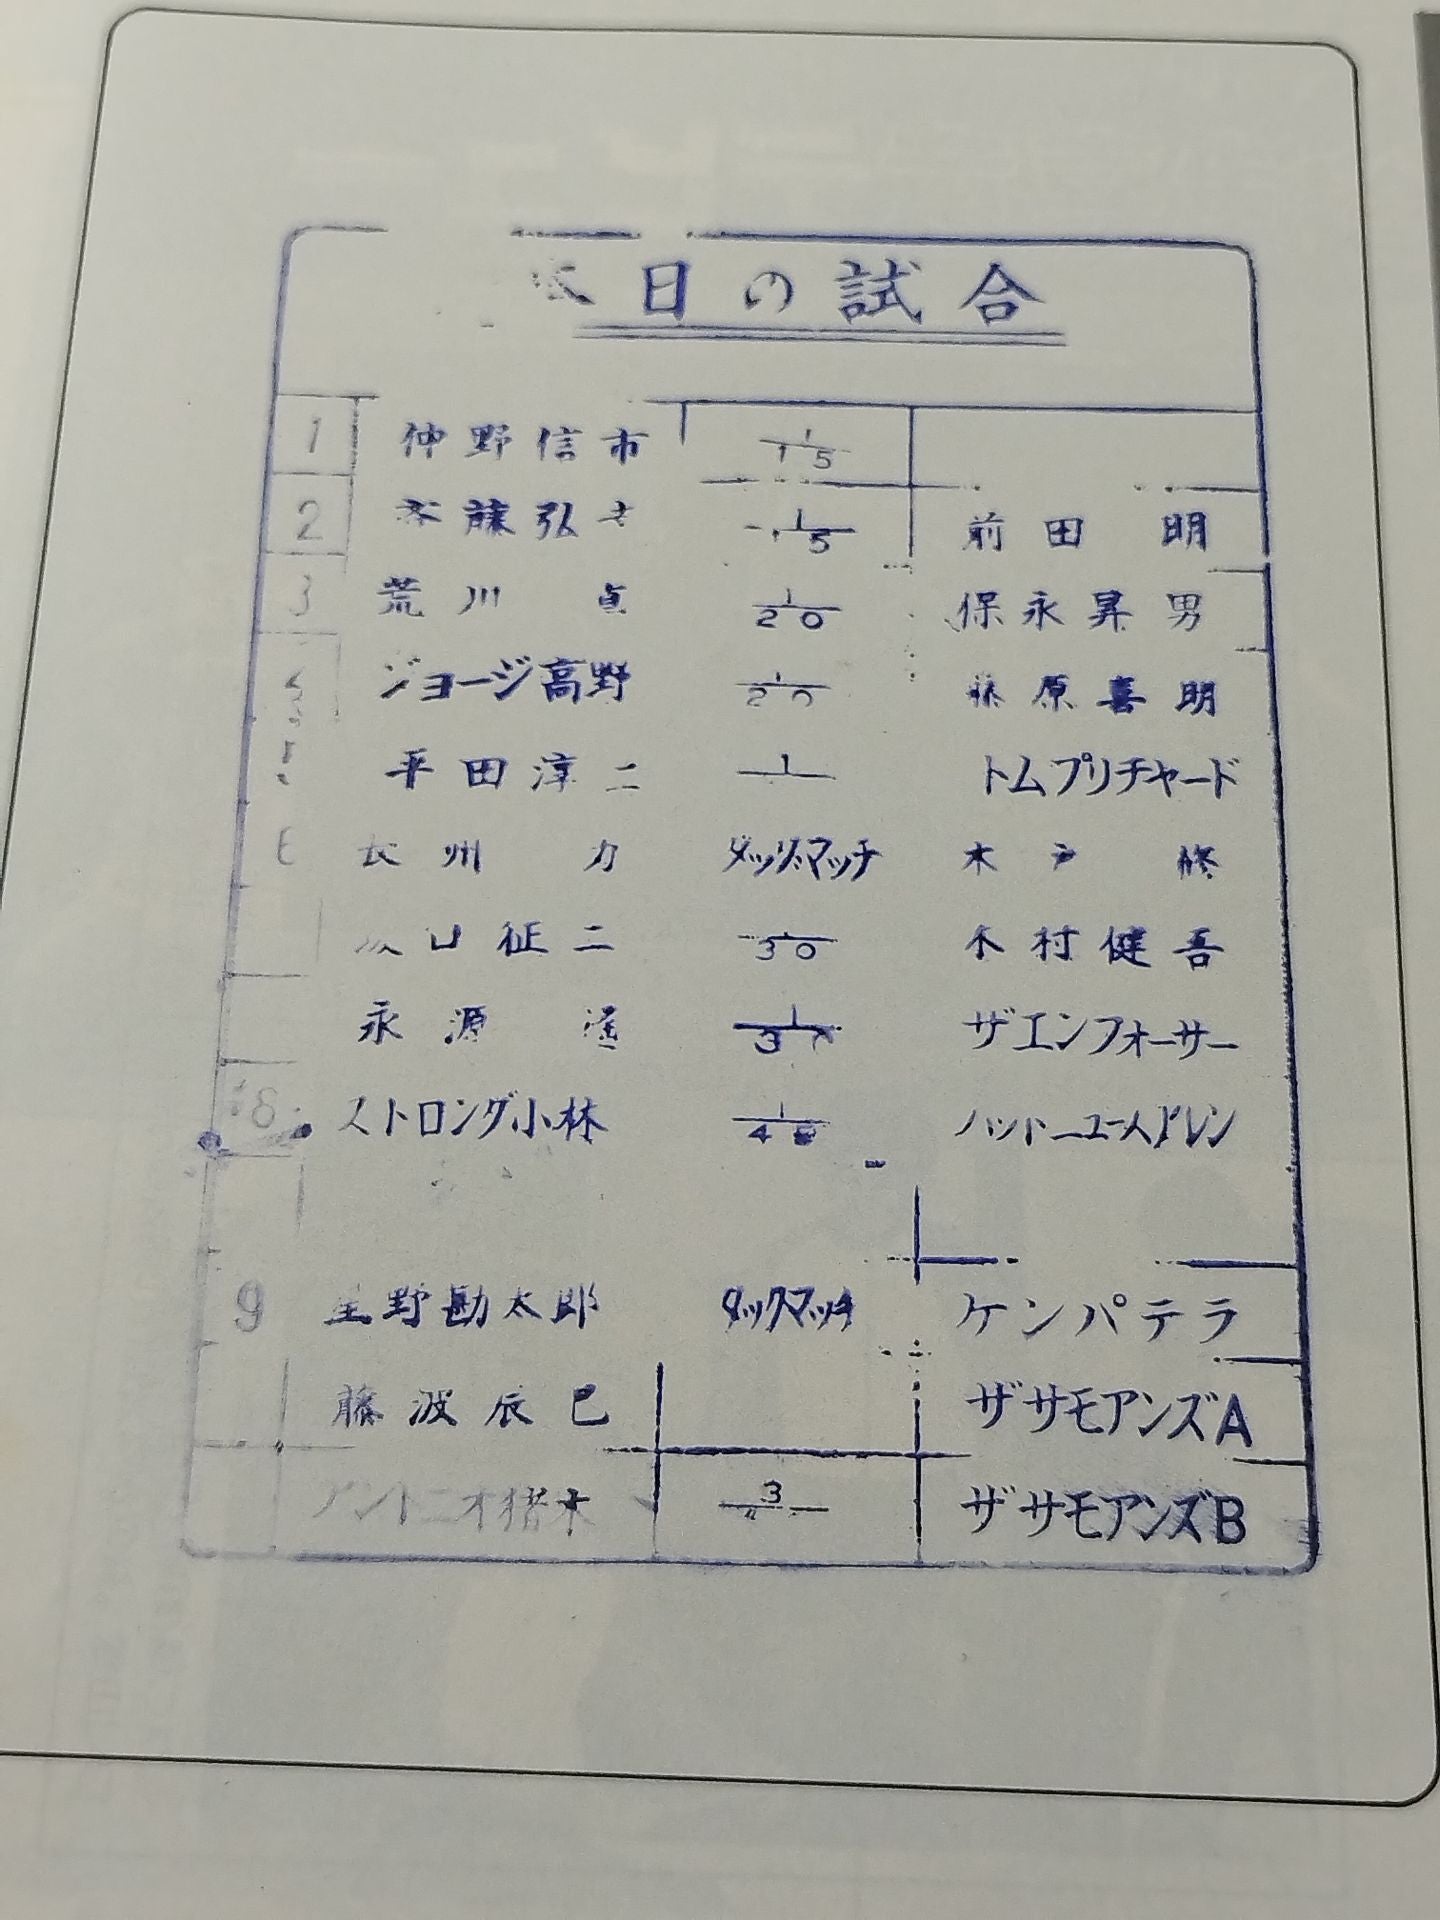 本日の試合
1 仲野信市 1/15
2 斉藤弘 1/15 前田 明
3 荒川 真 1/20 保永昇男
ジョージ高野 1/20 藤原喜明
平田淳二 1 トムプリチャード
6 長州 力 タッグマッチ 木戸 修
坂口征二 1/30 木村健吾
永源 遥 1/30 ザエンフォーサー
8 ストロング小林 1/45
9 星野勘太郎 タッグマッチ ケンパテラ
藤波辰巳 ザサモアンズA
アントニオ猪木 3 ザサモアンズB